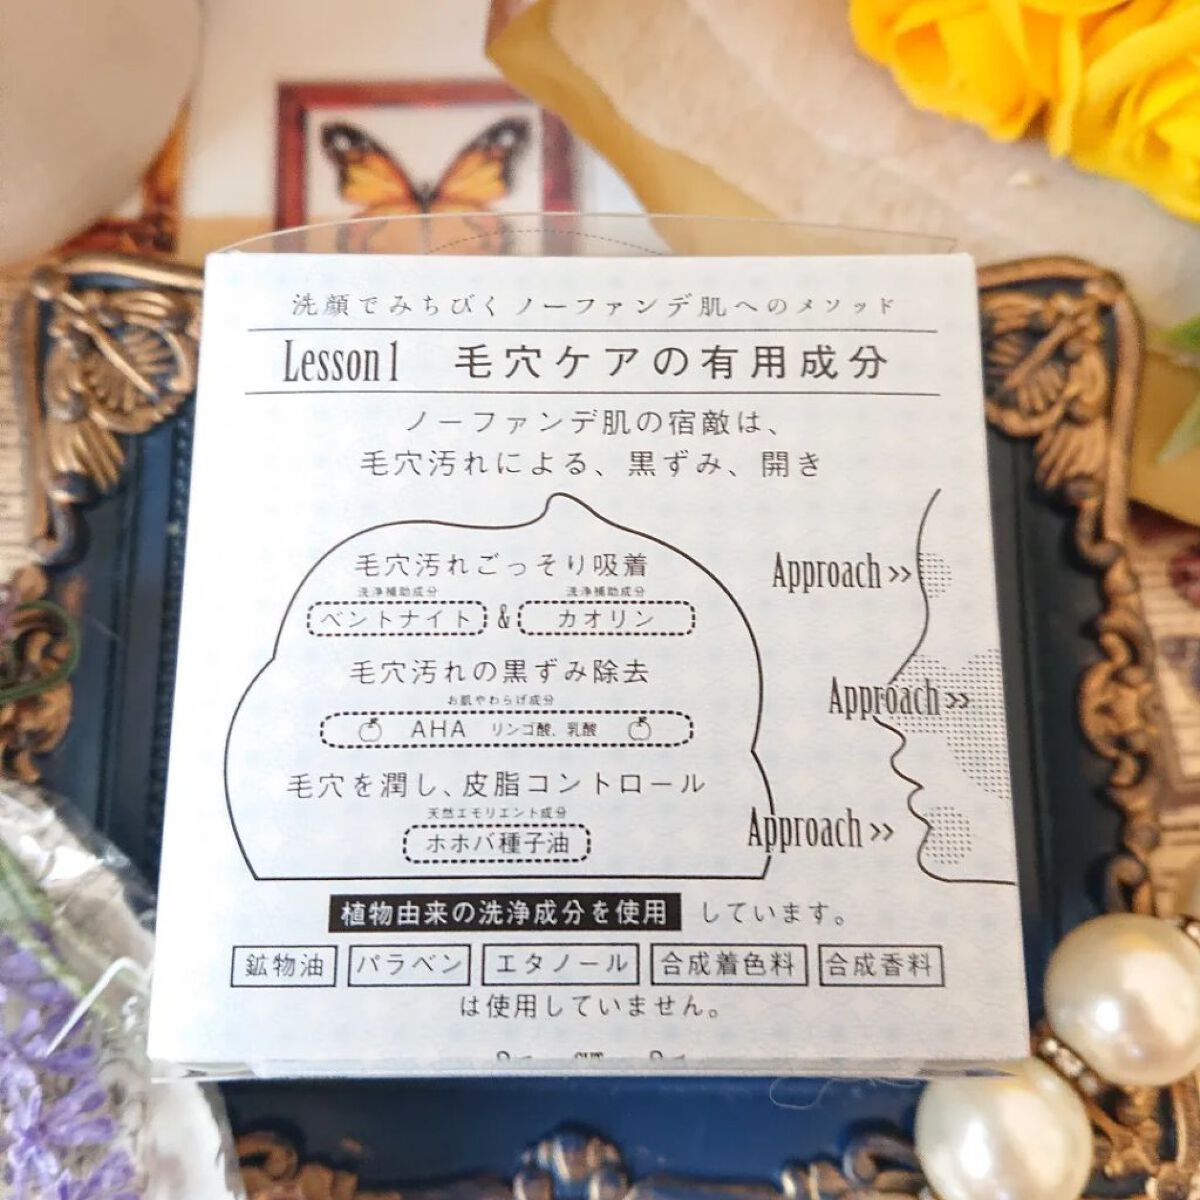 洗顔でみちびくノーファンデ肌へのメソッド
Lesson 1 毛穴ケアの有用成分
ノーファンデ肌の宿敵は、
毛穴汚れによる、黒ずみ、開き
毛穴汚れごっそり吸着
洗浄補助成分 洗浄補助成分
ベントナイト & カオリン
毛穴汚れの黒ずみ除去
お肌やわらげ成分
AHA リンゴ酸、乳酸
毛穴を潤し、皮脂コントロール
天然エモリエント成分
ホホバ種子油
Approach >>
Approach >>
Approach >>
植物由来の洗浄成分を使用 しています。
鉱物油 パラベン エタノール 合成着色料 合成香料
は使用していません。